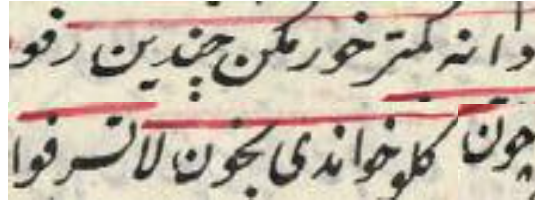 دانه کمتر خور مکن چندین رفو
چون کلوا خواندی بخوان لا تسرفوا